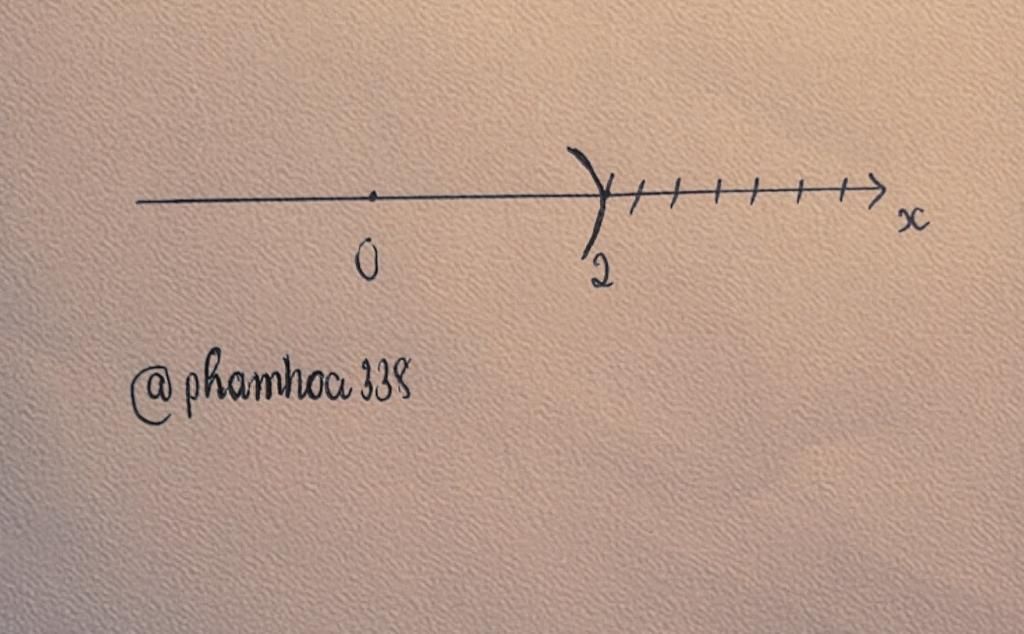 0 2 x
@phamhoa338